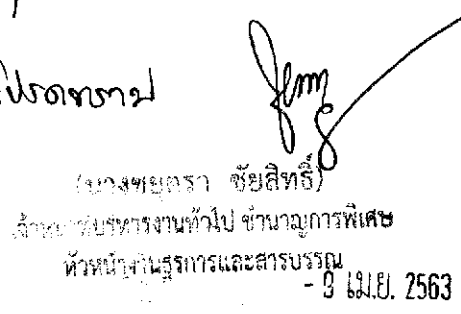 โปรดทราบ
(นางชยุตรา ชัยสิทธิ์)
เจ้าหน้าที่บริหารงานทั่วไป ชำนาญการพิเศษ
หัวหน้างานธุรการและสารบรรณ
- 9 เม.ย. 2563